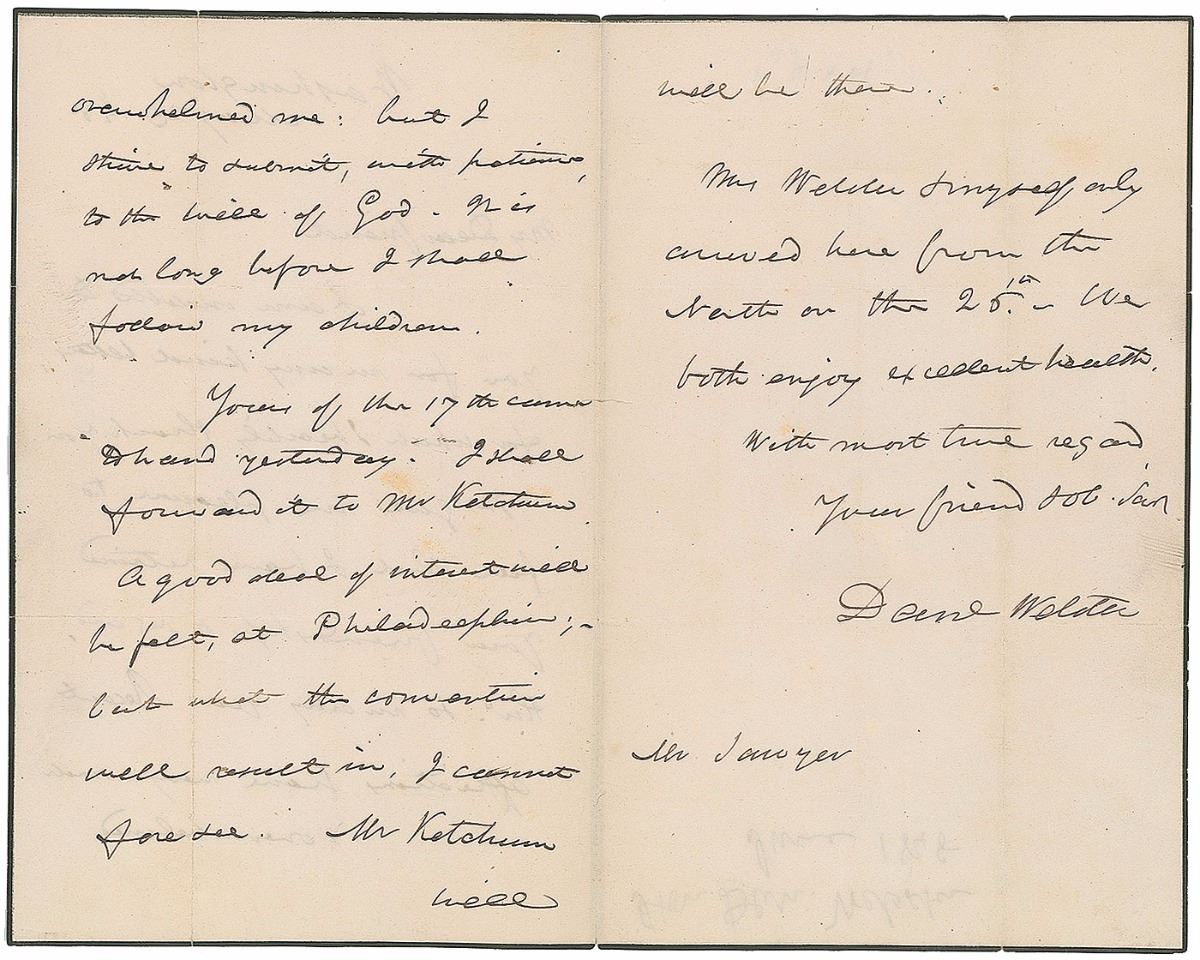 overwhelmed me: but I
strive to submit, with patience,
to the will of God. It is
not long before I shall
follow my children.
Yours of the 17th came
to hand yesterday. I shall
forward it to Mr Ketchum
A good deal of interest will
be felt, at Philadelphia;-
but what the convention
will result in, I cannot
foresee. Mr Ketchum
will
will be there.
Mrs Webster & myself only
arrived here from the
North on the 25th. We
both enjoy excellent health.
With most true regard
Your friend & ob. Sert
Danl Webster
Mr Sawyer